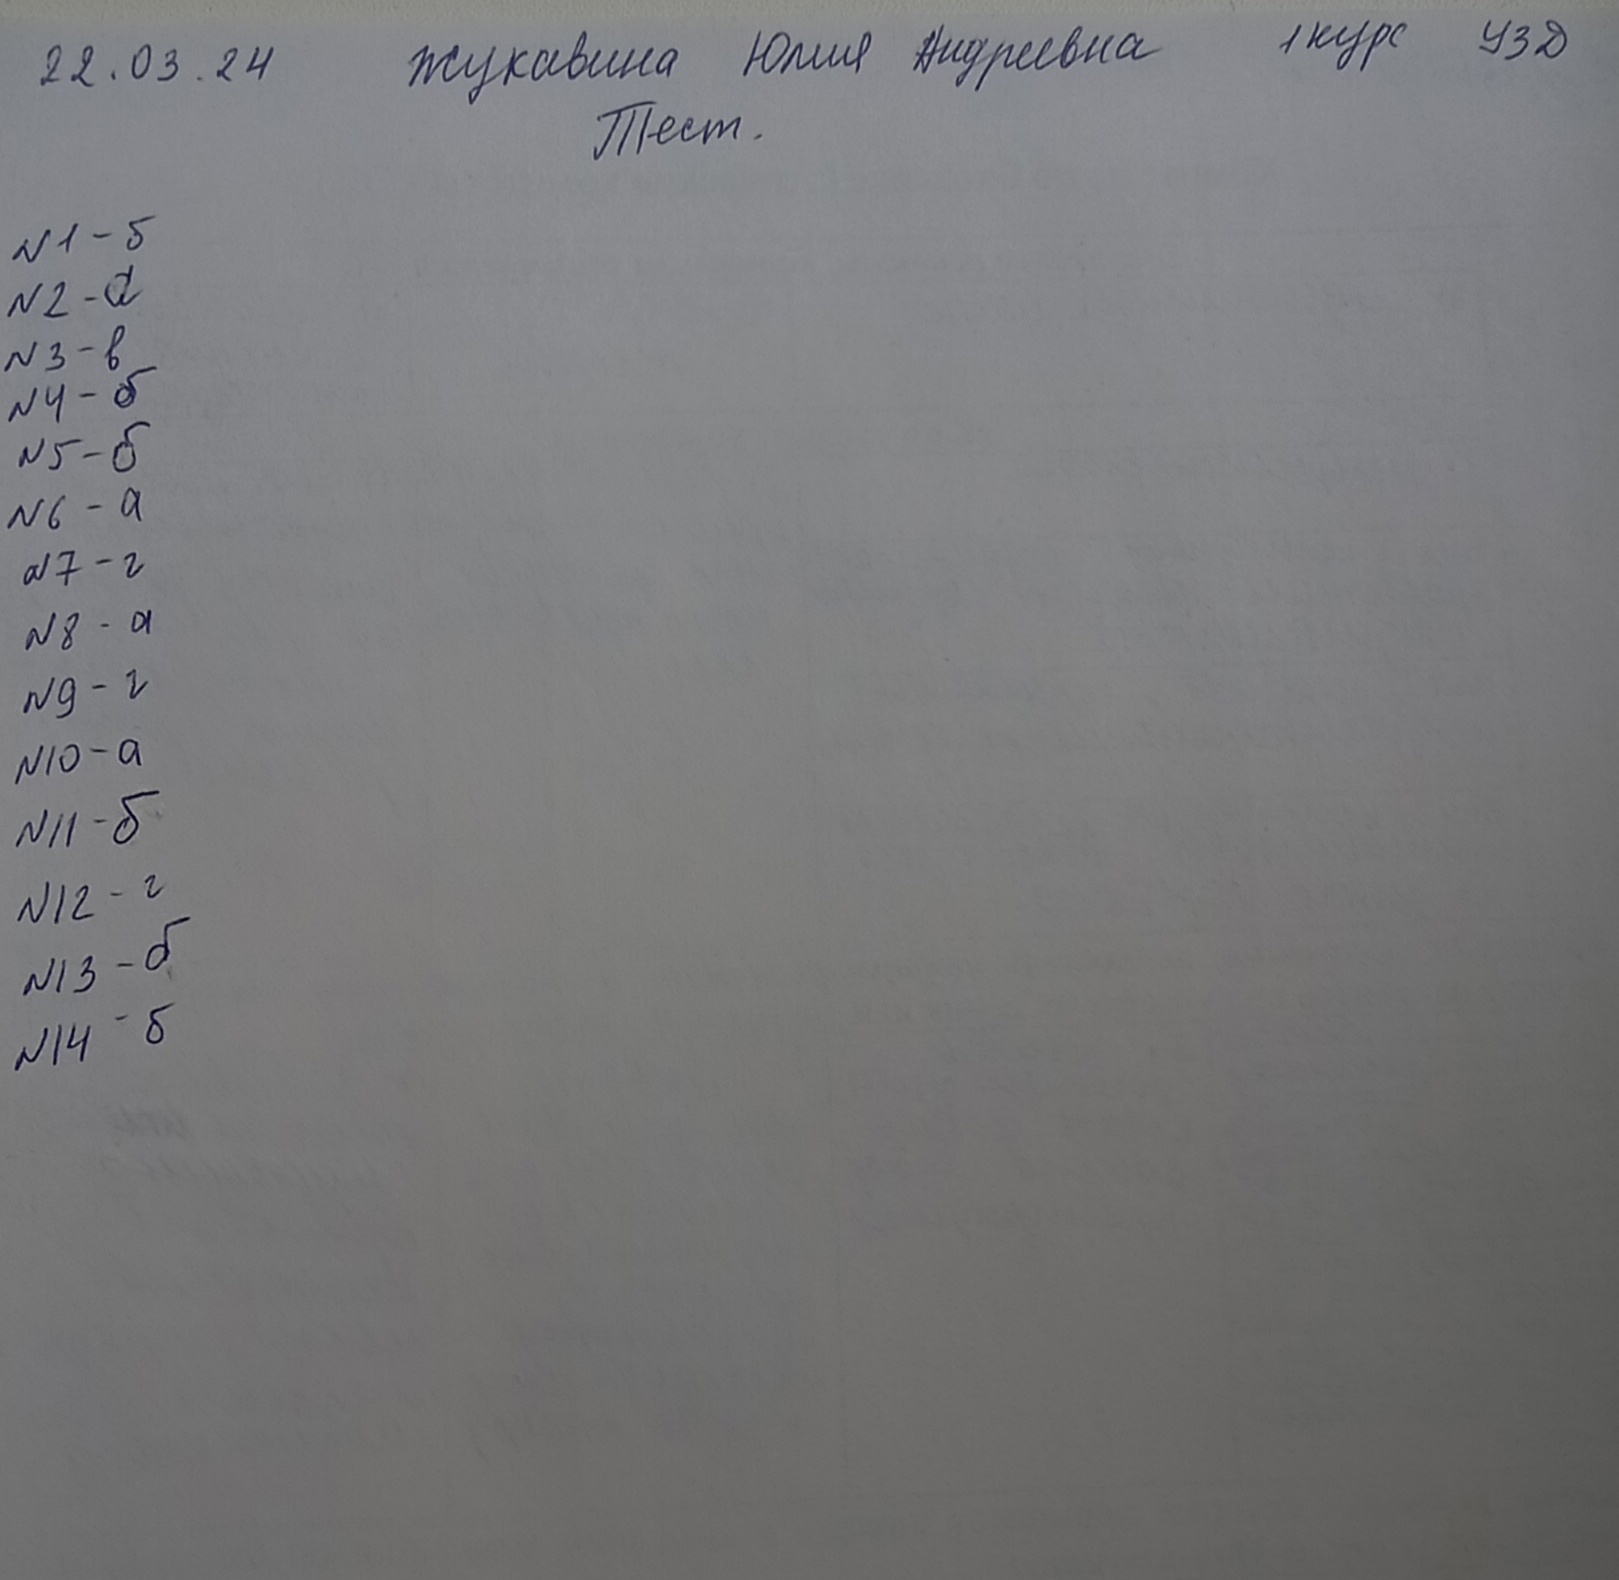 22.03.24 Жукавина Юлия Андреевна 1 курс УЗД
Тест.
N1 - б
N2 - а
N3 - в
N4 - б
N5 - б
N6 - а
N7 - г
N8 - а
N9 - г
N10 - а
N11 - б
N12 - г
N13 - б
N14 - б